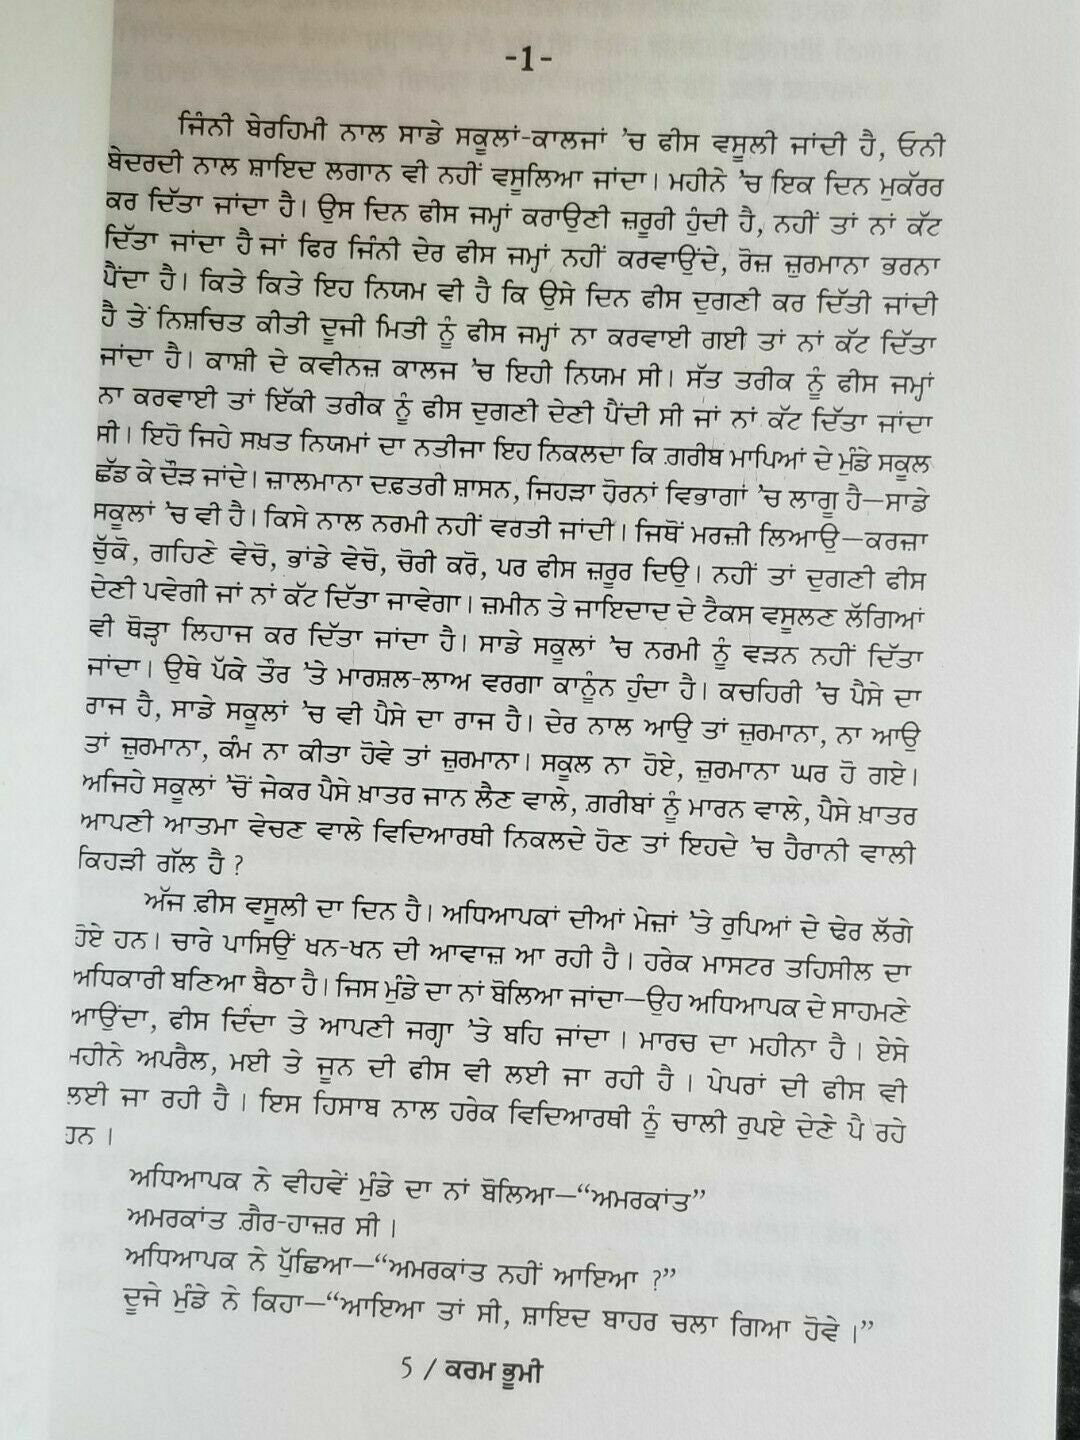 -1-
ਜਿੰਨੀ ਬੇਰਹਿਮੀ ਨਾਲ ਸਾਡੇ ਸਕੂਲਾਂ-ਕਾਲਜਾਂ 'ਚ ਫੀਸ ਵਸੂਲੀ ਜਾਂਦੀ ਹੈ, ਓਨੀ
ਬੇਦਰਦੀ ਨਾਲ ਸ਼ਾਇਦ ਲਗਾਨ ਵੀ ਨਹੀਂ ਵਸੂਲਿਆ ਜਾਂਦਾ। ਮਹੀਨੇ 'ਚ ਇਕ ਦਿਨ ਮੁਕੱਰਰ
ਕਰ ਦਿੱਤਾ ਜਾਂਦਾ ਹੈ। ਉਸ ਦਿਨ ਫੀਸ ਜਮ੍ਹਾਂ ਕਰਾਉਣੀ ਜ਼ਰੂਰੀ ਹੁੰਦੀ ਹੈ, ਨਹੀਂ ਤਾਂ ਨਾਂ ਕੱਟ
ਦਿੱਤਾ ਜਾਂਦਾ ਹੈ ਜਾਂ ਫਿਰ ਜਿੰਨੀ ਦੇਰ ਫੀਸ ਜਮ੍ਹਾਂ ਨਹੀਂ ਕਰਵਾਉਂਦੇ, ਰੋਜ਼ ਜ਼ੁਰਮਾਨਾ ਭਰਨਾ
ਪੈਂਦਾ ਹੈ। ਕਿਤੇ ਕਿਤੇ ਇਹ ਨਿਯਮ ਵੀ ਹੈ ਕਿ ਉਸੇ ਦਿਨ ਫੀਸ ਦੁਗਣੀ ਕਰ ਦਿੱਤੀ ਜਾਂਦੀ
ਹੈ ਤੇਂ ਨਿਸ਼ਚਿਤ ਕੀਤੀ ਦੂਜੀ ਮਿਤੀ ਨੂੰ ਫੀਸ ਜਮ੍ਹਾਂ ਨਾ ਕਰਵਾਈ ਗਈ ਤਾਂ ਨਾਂ ਕੱਟ ਦਿੱਤਾ
ਜਾਂਦਾ ਹੈ। ਕਾਸ਼ੀ ਦੇ ਕਵੀਨਜ਼ ਕਾਲਜ 'ਚ ਇਹੀ ਨਿਯਮ ਸੀ। ਸੱਤ ਤਰੀਕ ਨੂੰ ਫੀਸ ਜਮ੍ਹਾਂ
ਨਾ ਕਰਵਾਈ ਤਾਂ ਇੱਕੀ ਤਰੀਕ ਨੂੰ ਫੀਸ ਦੁਗਣੀ ਦੇਣੀ ਪੈਂਦੀ ਸੀ ਜਾਂ ਨਾਂ ਕੱਟ ਦਿੱਤਾ ਜਾਂਦਾ
ਸੀ। ਇਹੋ ਜਿਹੇ ਸਖ਼ਤ ਨਿਯਮਾਂ ਦਾ ਨਤੀਜਾ ਇਹ ਨਿਕਲਦਾ ਕਿ ਗ਼ਰੀਬ ਮਾਪਿਆਂ ਦੇ ਮੁੰਡੇ ਸਕੂਲ
ਛੱਡ ਕੇ ਦੌੜ ਜਾਂਦੇ। ਜ਼ਾਲਮਾਨਾ ਦਫ਼ਤਰੀ ਸ਼ਾਸਨ, ਜਿਹੜਾ ਹੋਰਨਾਂ ਵਿਭਾਗਾਂ 'ਚ ਲਾਗੂ ਹੈ—ਸਾਡੇ
ਸਕੂਲਾਂ 'ਚ ਵੀ ਹੈ। ਕਿਸੇ ਨਾਲ ਨਰਮੀ ਨਹੀਂ ਵਰਤੀ ਜਾਂਦੀ। ਜਿਥੋਂ ਮਰਜ਼ੀ ਲਿਆਉ—ਕਰਜ਼ਾ
ਚੁੱਕੋ, ਗਹਿਣੇ ਵੇਚੋ, ਭਾਂਡੇ ਵੇਚੋ, ਚੋਰੀ ਕਰੋ, ਪਰ ਫੀਸ ਜ਼ਰੂਰ ਦਿਉ। ਨਹੀਂ ਤਾਂ ਦੁਗਣੀ ਫੀਸ
ਦੇਣੀ ਪਵੇਗੀ ਜਾਂ ਨਾਂ ਕੱਟ ਦਿੱਤਾ ਜਾਵੇਗਾ। ਜ਼ਮੀਨ ਤੇ ਜਾਇਦਾਦ ਦੇ ਟੈਕਸ ਵਸੂਲਣ ਲੱਗਿਆਂ
ਵੀ ਥੋੜ੍ਹਾ ਲਿਹਾਜ ਕਰ ਦਿੱਤਾ ਜਾਂਦਾ ਹੈ। ਸਾਡੇ ਸਕੂਲਾਂ 'ਚ ਨਰਮੀ ਨੂੰ ਵੜਨ ਨਹੀਂ ਦਿੱਤਾ
ਜਾਂਦਾ। ਉਥੇ ਪੱਕੇ ਤੌਰ 'ਤੇ ਮਾਰਸ਼ਲ-ਲਾਅ ਵਰਗਾ ਕਾਨੂੰਨ ਹੁੰਦਾ ਹੈ। ਕਚਹਿਰੀ 'ਚ ਪੈਸੇ ਦਾ
ਰਾਜ ਹੈ, ਸਾਡੇ ਸਕੂਲਾਂ 'ਚ ਵੀ ਪੈਸੇ ਦਾ ਰਾਜ ਹੈ। ਦੇਰ ਨਾਲ ਆਉ ਤਾਂ ਜ਼ੁਰਮਾਨਾ, ਨਾ ਆਉ
ਤਾਂ ਜ਼ੁਰਮਾਨਾ, ਕੰਮ ਨਾ ਕੀਤਾ ਹੋਵੇ ਤਾਂ ਜ਼ੁਰਮਾਨਾ। ਸਕੂਲ ਨਾ ਹੋਏ, ਜ਼ੁਰਮਾਨਾ ਘਰ ਹੋ ਗਏ।
ਅਜਿਹੇ ਸਕੂਲਾਂ 'ਚੋਂ ਜੇਕਰ ਪੈਸੇ ਖ਼ਾਤਰ ਜਾਨ ਲੈਣ ਵਾਲੇ, ਗ਼ਰੀਬਾਂ ਨੂੰ ਮਾਰਨ ਵਾਲੇ, ਪੈਸੇ ਖ਼ਾਤਰ
ਆਪਣੀ ਆਤਮਾ ਵੇਚਣ ਵਾਲੇ ਵਿਦਿਆਰਥੀ ਨਿਕਲਦੇ ਹੋਣ ਤਾਂ ਇਹਦੇ 'ਚ ਹੈਰਾਨੀ ਵਾਲੀ
ਕਿਹੜੀ ਗੱਲ ਹੈ ?
ਅੱਜ ਫ਼ੀਸ ਵਸੂਲੀ ਦਾ ਦਿਨ ਹੈ। ਅਧਿਆਪਕਾਂ ਦੀਆਂ ਮੇਜ਼ਾਂ 'ਤੇ ਰੁਪਿਆਂ ਦੇ ਢੇਰ ਲੱਗੇ
ਹੋਏ ਹਨ। ਚਾਰੇ ਪਾਸਿਉਂ ਖਨ-ਖਨ ਦੀ ਆਵਾਜ਼ ਆ ਰਹੀ ਹੈ। ਹਰੇਕ ਮਾਸਟਰ ਤਹਿਸੀਲ ਦਾ
ਅਧਿਕਾਰੀ ਬਣਿਆ ਬੈਠਾ ਹੈ। ਜਿਸ ਮੁੰਡੇ ਦਾ ਨਾਂ ਬੋਲਿਆ ਜਾਂਦਾ—ਉਹ ਅਧਿਆਪਕ ਦੇ ਸਾਹਮਣੇ
ਆਉਂਦਾ, ਫੀਸ ਦਿੰਦਾ ਤੇ ਆਪਣੀ ਜਗ੍ਹਾ 'ਤੇ ਬਹਿ ਜਾਂਦਾ। ਮਾਰਚ ਦਾ ਮਹੀਨਾ ਹੈ। ਏਸੇ
ਮਹੀਨੇ ਅਪਰੈਲ, ਮਈ ਤੇ ਜੂਨ ਦੀ ਫੀਸ ਵੀ ਲਈ ਜਾ ਰਹੀ ਹੈ। ਪੇਪਰਾਂ ਦੀ ਫੀਸ ਵੀ
ਲਈ ਜਾ ਰਹੀ ਹੈ। ਇਸ ਹਿਸਾਬ ਨਾਲ ਹਰੇਕ ਵਿਦਿਆਰਥੀ ਨੂੰ ਚਾਲੀ ਰੁਪਏ ਦੇਣੇ ਪੈ ਰਹੇ
ਹਨ।
ਅਧਿਆਪਕ ਨੇ ਵੀਹਵੇਂ ਮੁੰਡੇ ਦਾ ਨਾਂ ਬੋਲਿਆ—“ਅਮਰਕਾਂਤ”
ਅਮਰਕਾਂਤ ਗ਼ੈਰ-ਹਾਜ਼ਰ ਸੀ।
ਅਧਿਆਪਕ ਨੇ ਪੁੱਛਿਆ—“ਅਮਰਕਾਂਤ ਨਹੀਂ ਆਇਆ ?”
ਦੂਜੇ ਮੁੰਡੇ ਨੇ ਕਿਹਾ—“ਆਇਆ ਤਾਂ ਸੀ, ਸ਼ਾਇਦ ਬਾਹਰ ਚਲਾ ਗਿਆ ਹੋਵੇ।”
5 / ਕਰਮ ਭੂਮੀ